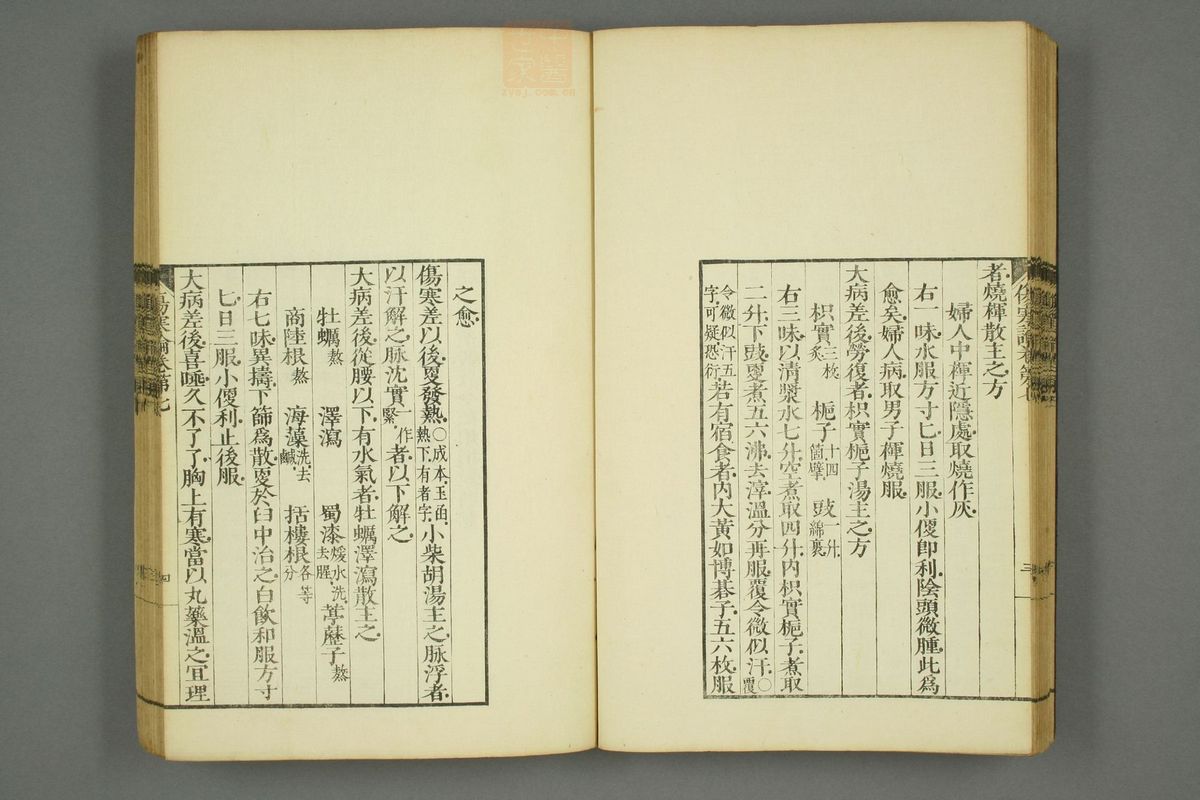 者燒裈散主之方
婦人中裈近隱處取燒作灰
右一味水服方寸匕日三服小便卽利陰頭微腫此爲
愈矣婦人病取男子裈燒服
大病差後勞復者枳實梔子湯主之方
枳實三枚炙 梔子十四箇擘 豉一升綿裹
右三味以淸漿水七升空煮取四升內枳實梔子煮取
二升下豉更煮五六沸去滓溫分再服覆令微似汗○覆
令微似汗五字可疑恐衍若有宿食者內大黃如博碁子五六枚服
之愈
傷寒差以後更發熱○成本玉函熱下有者字小柴胡湯主之脉浮者
以汗解之脉沈實一作緊者以下解之
大病差後從腰以下有水氣者牡蠣澤瀉散主之
牡蠣熬 澤瀉 蜀漆煖水洗去腥 葶藶子熬
商陸根熬 海藻洗去鹹 栝樓根各等分
右七味異擣下篩爲散更於臼中治之白飮和服方寸
匕日三服小便利止後服
大病差後喜唾久不了了胸上有寒當以丸藥溫之宜理
傷寒論卷第七
傷寒論卷第七
四
zysj.com.cn